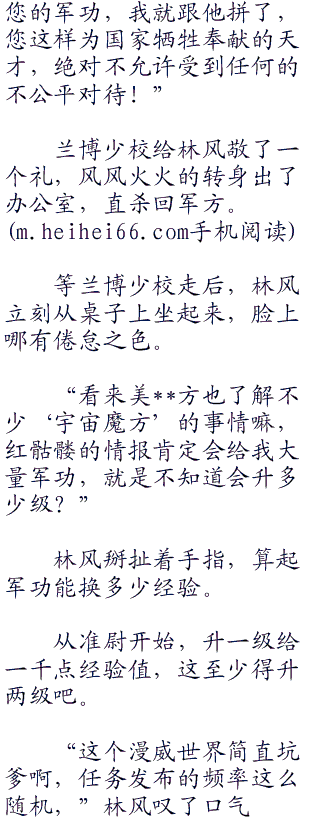 您的军功，我就跟他拼了，
您这样为国家牺牲奉献的天
才，绝对不允许受到任何的
不公平对待！”
兰博少校给林风敬了一
个礼，风风火火的转身出了
办公室，直杀回军方。
(m.heihei66.com手机阅读)
等兰博少校走后，林风
立刻从桌子上坐起来，脸上
哪有倦怠之色。
“看来美**方也了解不
少‘宇宙魔方’的事情嘛，
红骷髅的情报肯定会给我大
量军功，就是不知道会升多
少级？”
林风掰扯着手指，算起
军功能换多少经验。
从准尉开始，升一级给
一千点经验值，这至少得升
两级吧。
“这个漫威世界简直坑
爹啊，任务发布的频率这么
随机，”林风叹了口气